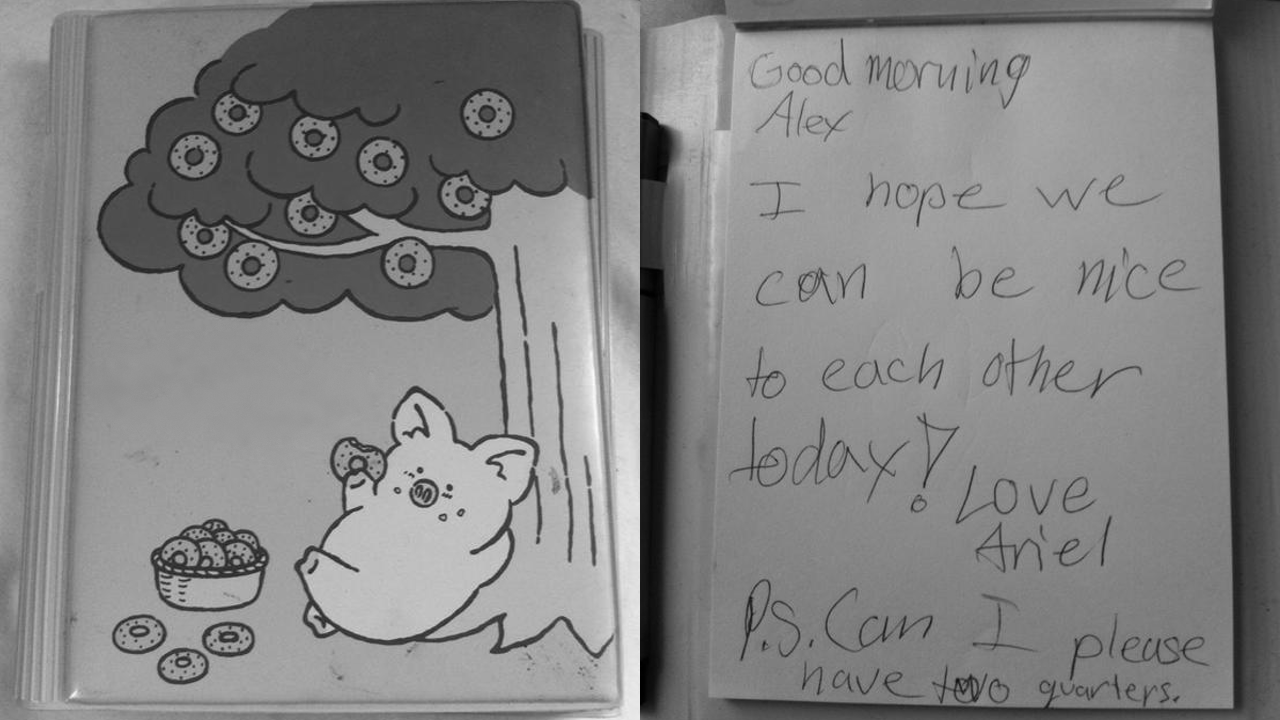 Good morning
Alex
I hope we
can be nice
to each other
today!
Love
Ariel
P.S. Can I please
have two quarters.